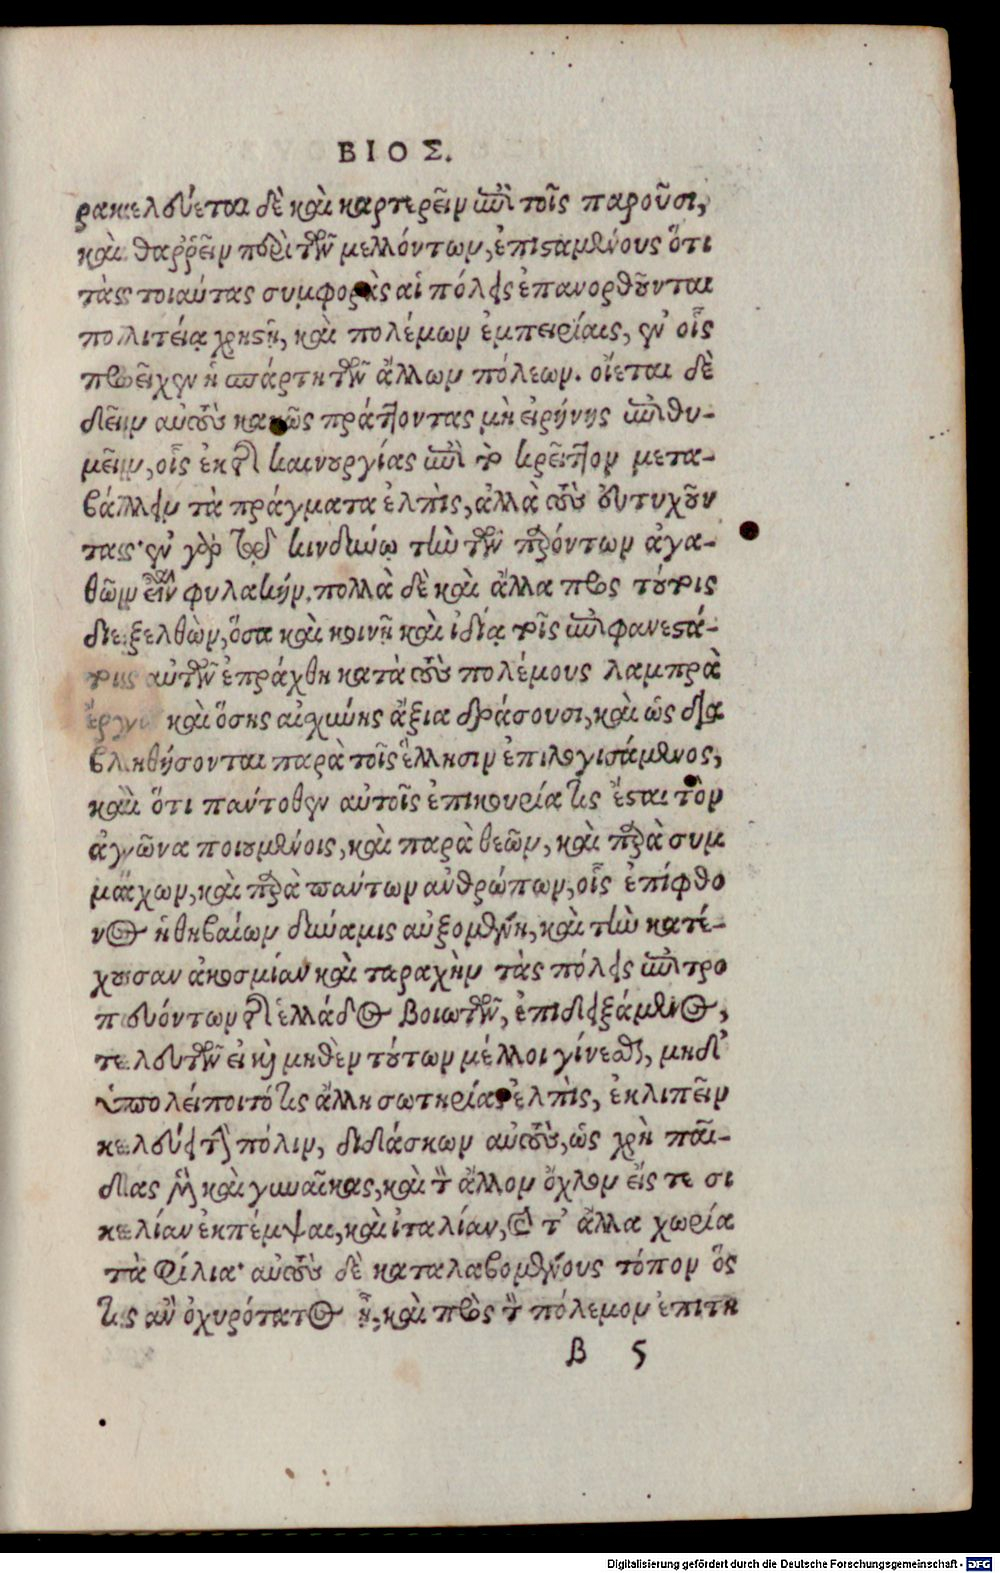 ΒΙΟΣ.
ρακελεύεται δὲ καὶ καρτερεῖν ἐπὶ τοῖς παροῦσι,
καὶ θαῤῥεῖν περὶ τῶν μελλόντων, ἐπισταμένους ὅτι
τὰς τοιαύτας συμφορὰς αἱ πόλεις ἐπανορθοῦνται
πολιτείᾳ χρηστῇ, καὶ πολέμων ἐμπειρίαις, ἐν οἷς
προεῖχεν ἡ σπάρτη τῶν ἄλλων πόλεων. οἴεται δὲ
δεῖν αὐτοὺς κακῶς πράττοντας μὴ εἰρήνης ἐπιθυ-
μεῖν, οἷς ἐκ τῆς καινουργίας ἐπὶ τὸ κρεῖττον μετα-
βάλλειν τὰ πράγματα ἐλπὶς, ἀλλὰ τοὺς εὐτυχοῦν
τας· ἐν γὰρ τῷ κινδύνῳ τὴν τῶν παρόντων ἀγα-
θῶν εἶναι φυλακήν. πολλὰ δὲ καὶ ἄλλα πρὸς τούτοις
διεξελθὼν, ὅσα καὶ κοινῇ καὶ ἰδίᾳ τοῖς ἐπιφανεστά-
τοις αὐτῶν ἐπράχθη κατὰ τοὺς πολέμους λαμπρὰ
ἔργα καὶ ὅσης αἰσχύνης ἄξια δράσουσι, καὶ ὡς δια
βληθήσονται παρὰ τοῖς ἕλλησιν ἐπιλογισάμενος,
καὶ ὅτι παντόθεν αὐτοῖς ἐπικουρία τις ἔσται τὸν
ἀγῶνα ποιουμένοις, καὶ παρὰ θεῶν, καὶ παρὰ συμ
μάχων, καὶ παρὰ πάντων ἀνθρώπων, οἷς ἐπίφθο
νος ἡ θηβαίων δύναμις αὐξομένη, καὶ τὴν κατέ-
χουσαν ἀκοσμίαν καὶ ταραχὴν τὰς πόλεις ἐπιτρο
πευόντων τῆς ἑλλάδος βοιωτῶν, ἐπιδειξάμενος,
τελευτῶν εἰ καὶ μηθὲν τούτων μέλλοι γίνεσθαι, μηδ'
ὑπολείποιτό τις ἄλλη σωτηρίας ἐλπὶς, ἐκλιπεῖν
κελεύει τὴν πόλιν, διδάσκων αὐτοὺς, ὡς χρὴ παῖ-
δας μὲν καὶ γυναῖκας, καὶ τὸν ἄλλον ὄχλον εἴς τε σι
κελίαν ἐκπέμψαι, καὶ ἰταλίαν, καὶ τ' ἄλλα χωρία
τὰ φίλια· αὐτοὺς δὲ καταλαβομένους τόπον ὅς
τις ἂν ὀχυρότατος ᾖ, καὶ πρὸς τὸν πόλεμον ἐπιτη
β 5
Digitalisierung gefördert durch die Deutsche Forschungsgemeinschaft - DFG